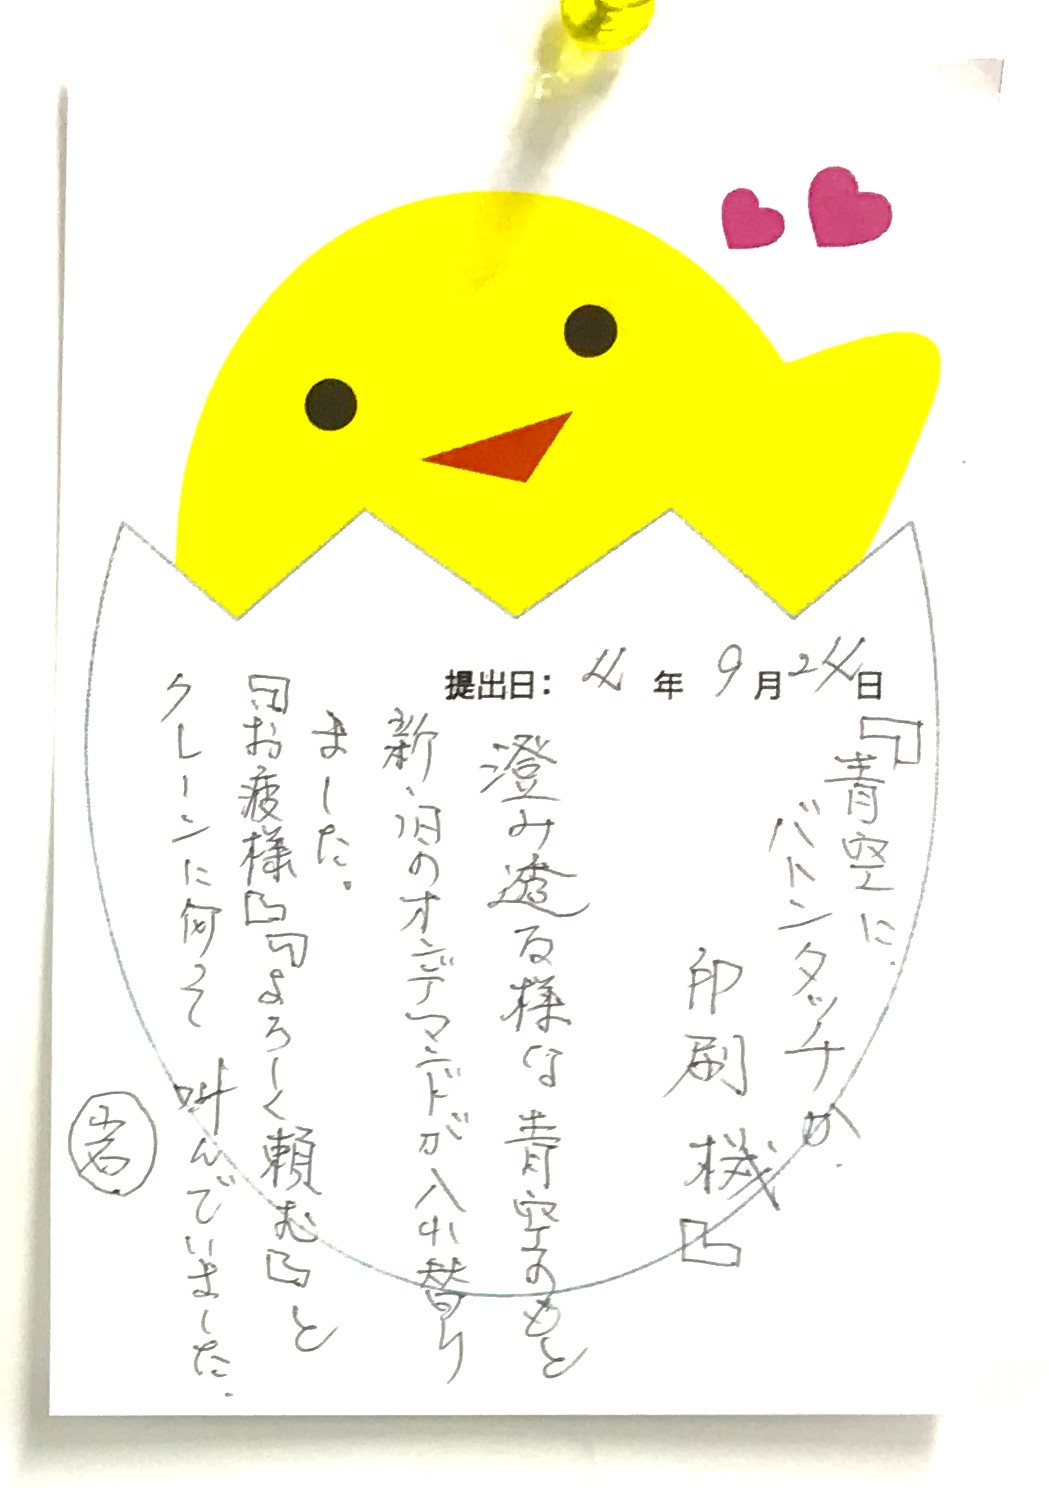 提出日： 4年 9月24日
『青空に、
バトンタッチか、
印刷機』
澄み透る様な青空のもと
新、旧のオンデマンドが入れ替り
ました。
『お疲様』『よろしく頼む』と
クレーンに向って 叫んでいました。
岩